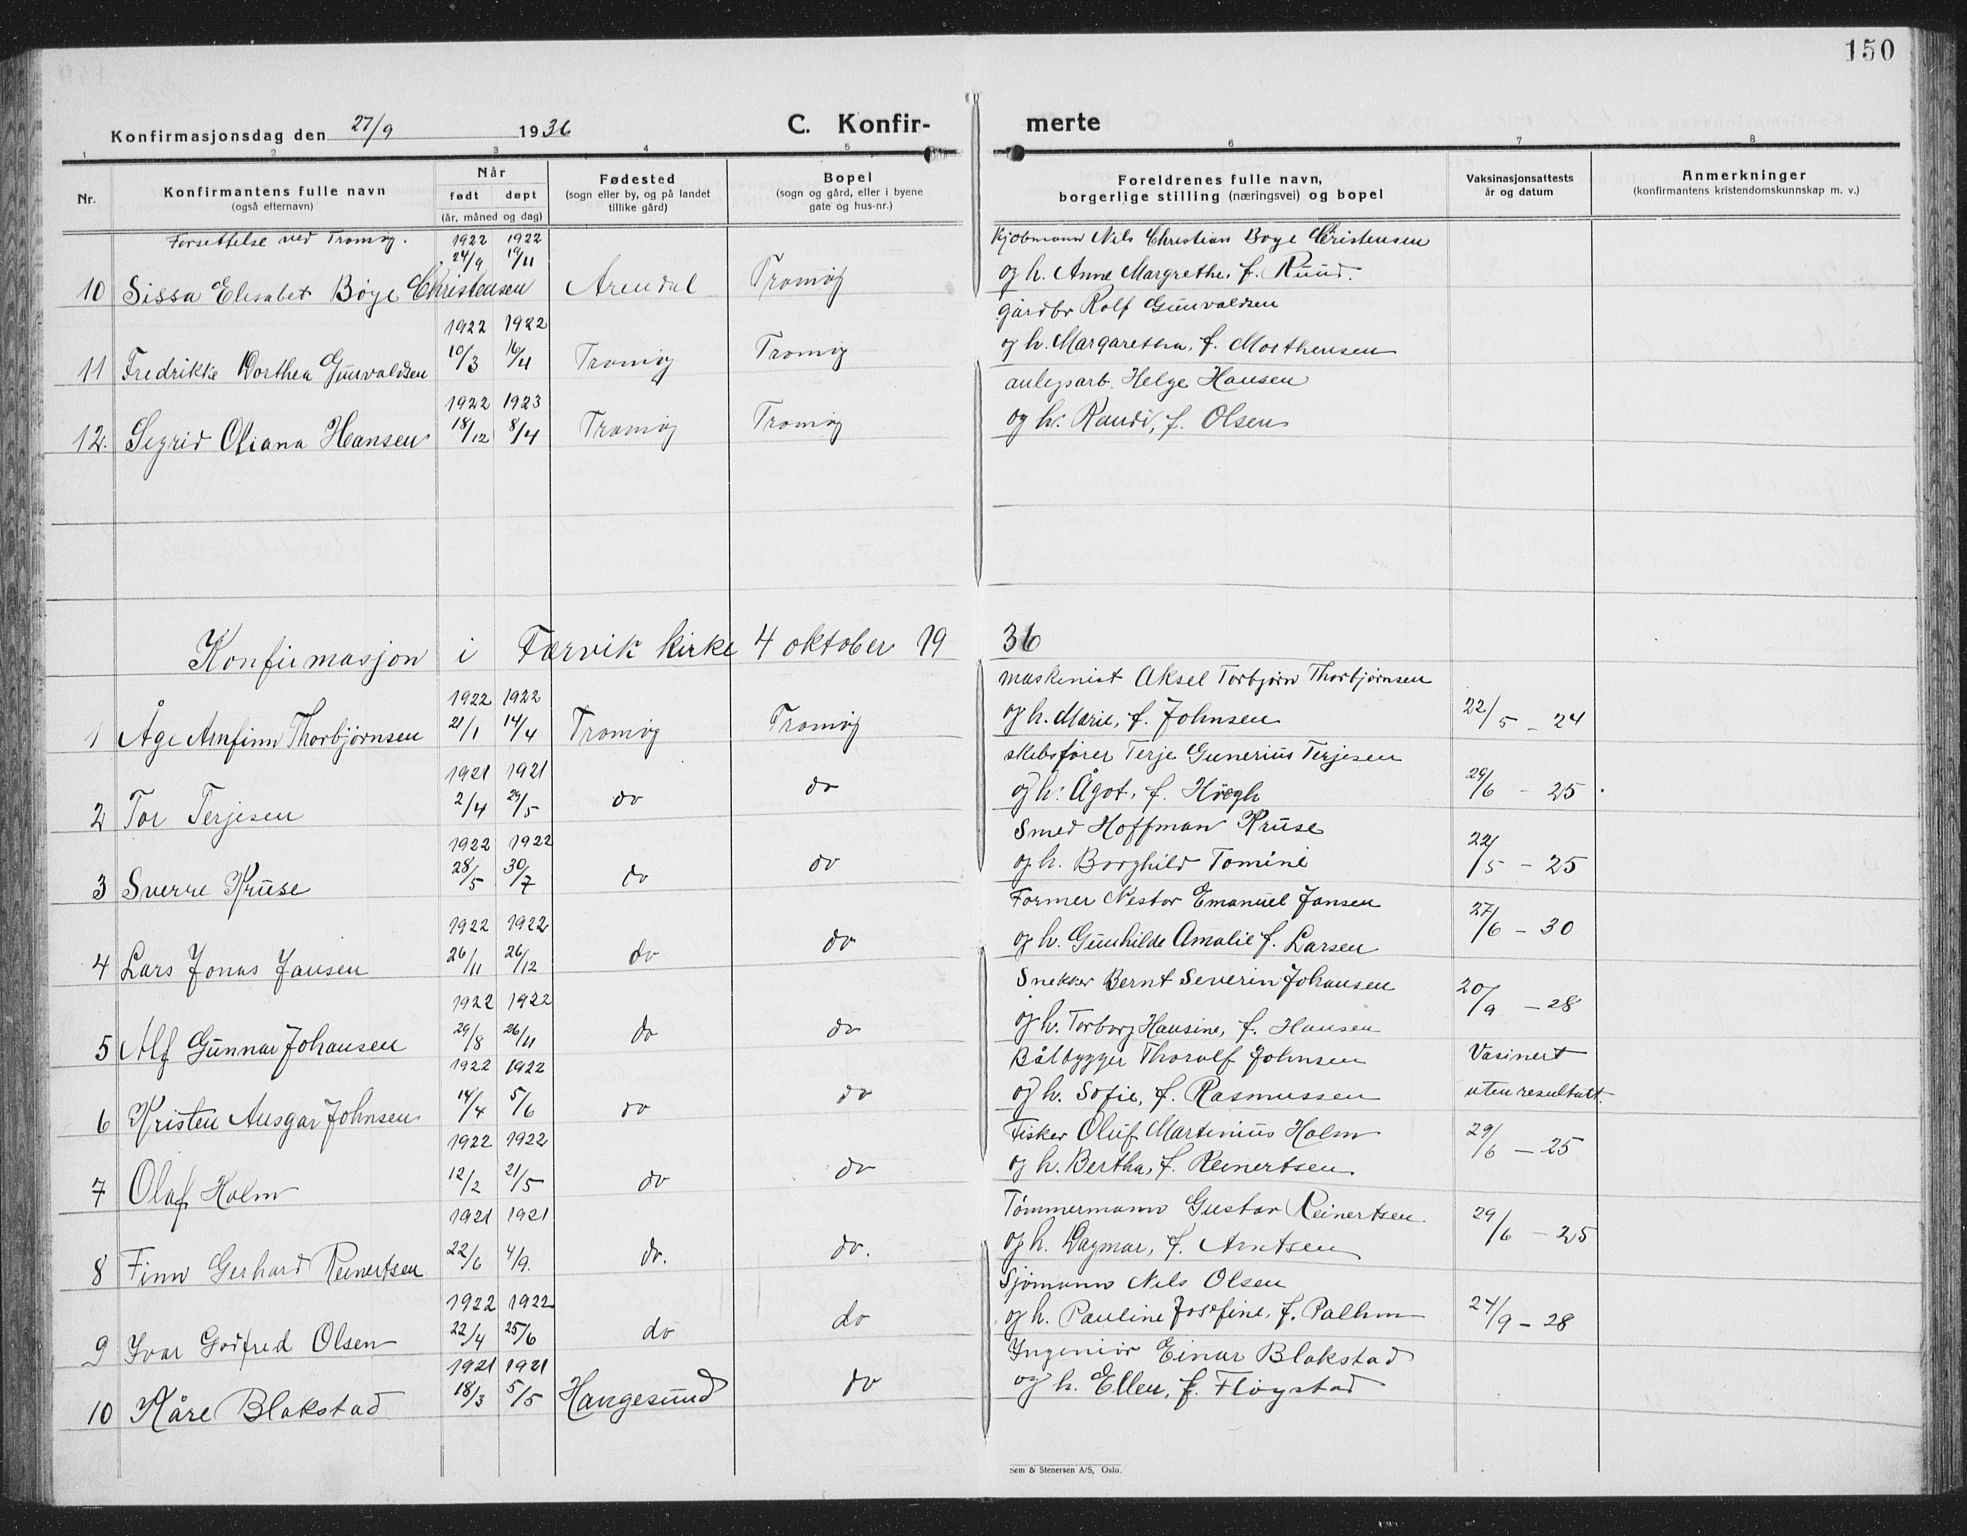 150
Konfirmasjonsdag den 27/9 1936 C. Konfir- merte
1 2 3 4 5 6 7 8
Nr.
Konfirmantens fulle navn
(også efternavn)
Når
født døpt
(år, måned og dag)
Fødested
(sogn eller by, og på landet
tillike gård)
Bopel
(sogn og gård, eller i byene
gate og hus-nr.)
Foreldrenes fulle navn,
borgerlige stilling (næringsvei) og bopel
Vaksinasjonsattests
år og datum
Anmerkninger
(konfirmantens kristendomskunnskap m. v.)
Forsettelse ved Tromøy. 1922 1922 Kjøbmann Nils Christian Boye Christensen
10 Sissa Elisabet Böye Christensen 24/9 19/11 Arendal Tromöy og h. Anne Margrethe, f. Ruud.
1922 1922 gårdbr Rolf Gunvaldsen
11 Fredrikke Dorthea Gunvaldsen 10/3 16/4 Tromöy Tromöy og h. Margaretha, f. Morthensen
1922 1923 anlegsarb. Helge Hansen
12. Sigrid Oliana Hansen 18/12 8/4 Tromöy Tromöy og h. Randi, f. Olsen
Konfirmasjon i Færvik kirke 4 oktober 1936
1922 1922 maskinist Aksel Torbjørn Thorbjørnsen
1 Åge Arnfinn Thorbjörnsen 21/1 14/4 Tromöy Tromöy og h. Marie, f. Johnsen 22/5 - 24
1921 1921 skibsfører Terje Gunerius Terjesen
2 Tor Terjesen 2/4 29/5 do do og h. Ågot, f. Höegh 29/6 - 25
1922 1922 Smed Hoffman Kruse
3 Sverre Kruse 28/5 30/7 do do og h. Borghild Tomine 22/5 - 25
1922 1922 Former Nestor Emanuel Jansen
4 Lars Jonas Jansen 26/11 26/12 do do og h. Gunhilde Amalie f. Larsen 27/6 - 30
1922 1922 Snekker Bernt Severin Johansen
5 Alf Gunnar Johansen 29/8 26/11 do do og h. Torborg Hansine, f. Hansen 20/9 - 28
1922 1922 Båtbygger Thoralf Johnsen Vasinert
6 Kristen Ansgar Johnsen 14/4 5/6 do do og h. Sofie, f. Rasmussen uten resultatt.
1922 1922 Fisker Oluf Martinius Holm
7 Olaf Holm 12/2 21/5 do do og h. Bertha, f. Reinertsen 29/6 - 25
1921 1921 Tømmermann Gustav Reinertsen
8 Finn Gerhard Reinertsen 22/6 4/9. do. do. og h. Dagmar, f. Arntsen 29/6 - 25
1922 1922 Sjømann Nils Olsen
9 Ivar Godfred Olsen 22/4 25/6 do do og h. Pauline Josefine, f. Palhm 24/9 - 28
1921 1921 Ingeniör Einar Blakstad
10 Kåre Blakstad 18/3 5/5 Haugesund do og h. Ellen, f. Fløystad
Sem & Stenersen A/S, Oslo.